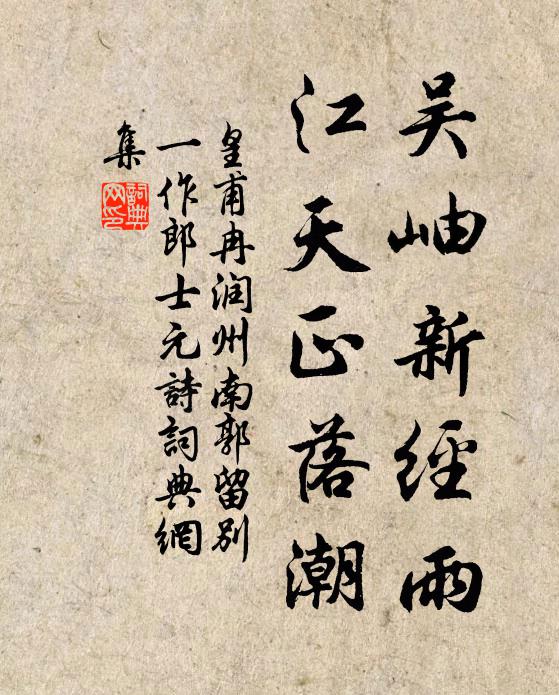 吴岫新經雨
江天正落潮
皇甫冉润州南郭留别
一作郎士元詩詞典網
集
詞典網印